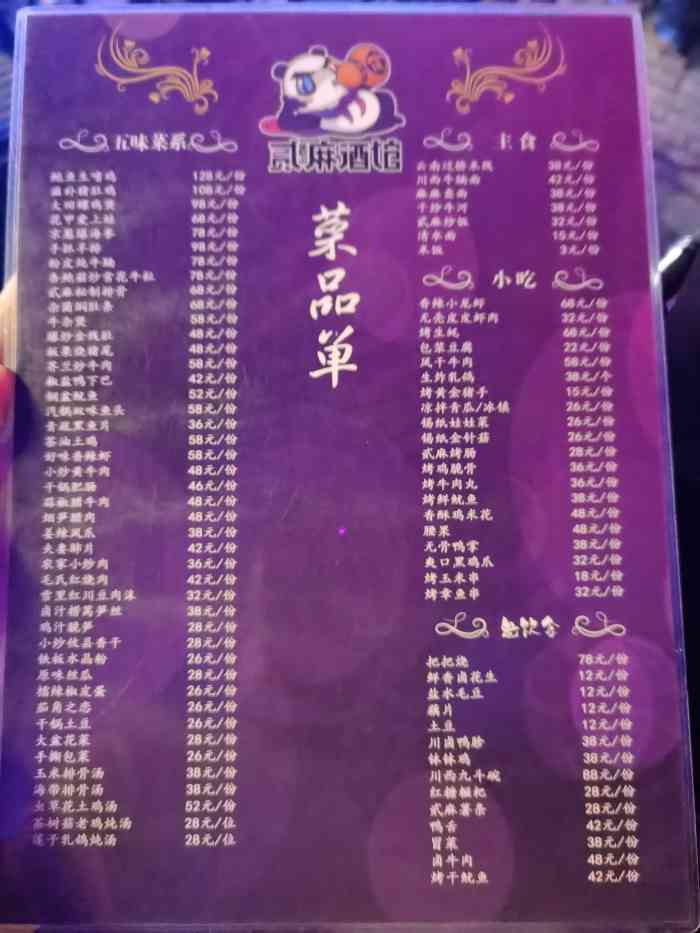 贰麻酒馆
菜品单
五味菜系
鲍鱼生啫鸡 128元/份
滋补猪肚鸡 108元/份
大田螺鸡煲 98元/份
花甲爱上娃 68元/份
京葱爆海参 78元/份
手抓羊排 98元/份
粉皮炖牛腩 78元/份
杂炮菇炒雪花牛粒 78元/份
贰麻秘制排骨 68元/份
杂菌焖肚条 68元/份
牛杂煲 58元/份
爆炒金钱肚 48元/份
板栗烧猪尾 48元/份
芥兰炒牛肉 58元/份
椒盐鸭下巴 42元/份
铜盆鱿鱼 52元/份
汽锅双味鱼头 58元/份
青蔬黑鱼片 36元/份
茶油土鸡 58元/份
好味香辣虾 58元/份
小炒黄牛肉 48元/份
干锅肥肠 46元/份
蒜椒腊牛肉 48元/份
烟笋腊肉 48元/份
姜辣凤爪 38元/份
夫妻肺片 42元/份
农家小炒肉 36元/份
毛氏红烧肉 42元/份
雪里红川豆肉沫 32元/份
卤汁捞莴笋丝 38元/份
鸡汁脆笋 28元/份
小炒攸县香干 28元/份
铁板水晶粉 26元/份
原味丝瓜 28元/份
擂辣椒皮蛋 26元/份
茄角之恋 26元/份
干锅土豆 26元/份
大盆花菜 28元/份
手撕包菜 26元/份
玉米排骨汤 38元/份
海带排骨汤 38元/份
虫草花土鸡汤 52元/份
茶树菇老鸡炖汤 28元/位
莲子乳鸽炖汤 28元/位
主食
云南过桥米线 38元/份
川西牛腩面 42元/份
麻麻鱼面 38元/份
干炒牛河 38元/份
贰麻炒饭 32元/份
清水面 15元/份
米饭 3元/份
小吃
香辣小龙虾 68元/份
无壳皮皮虾肉 32元/份
烤生蚝 68元/份
包浆豆腐 22元/份
风干牛肉 58元/份
生炸乳鸽 38元/个
烤黄金猪手 15元/份
凉拌青瓜/冰镇 26元/份
锡纸娃娃菜 26元/份
锡纸金针菇 26元/份
贰麻烤肠 28元/份
烤鸡脆骨 36元/份
烤牛肉丸 36元/份
烤鲜鱿鱼 38元/份
香酥鸡米花 48元/份
腰果 48元/份
无骨鸭掌 38元/份
爽口黑鸡爪 32元/份
烤玉米串 18元/份
烤章鱼串 32元/份
把把烧 78元/份
鲜香卤花生 12元/份
盐水毛豆 12元/份
藕片 12元/份
土豆 12元/份
川卤鸭胗 38元/份
钵钵鸡 38元/份
川西九斗碗 88元/份
红糖糍粑 28元/份
贰麻薯条 28元/份
鸭舌 42元/份
冒菜 38元/份
卤牛肉 48元/份
烤干鱿鱼 42元/份